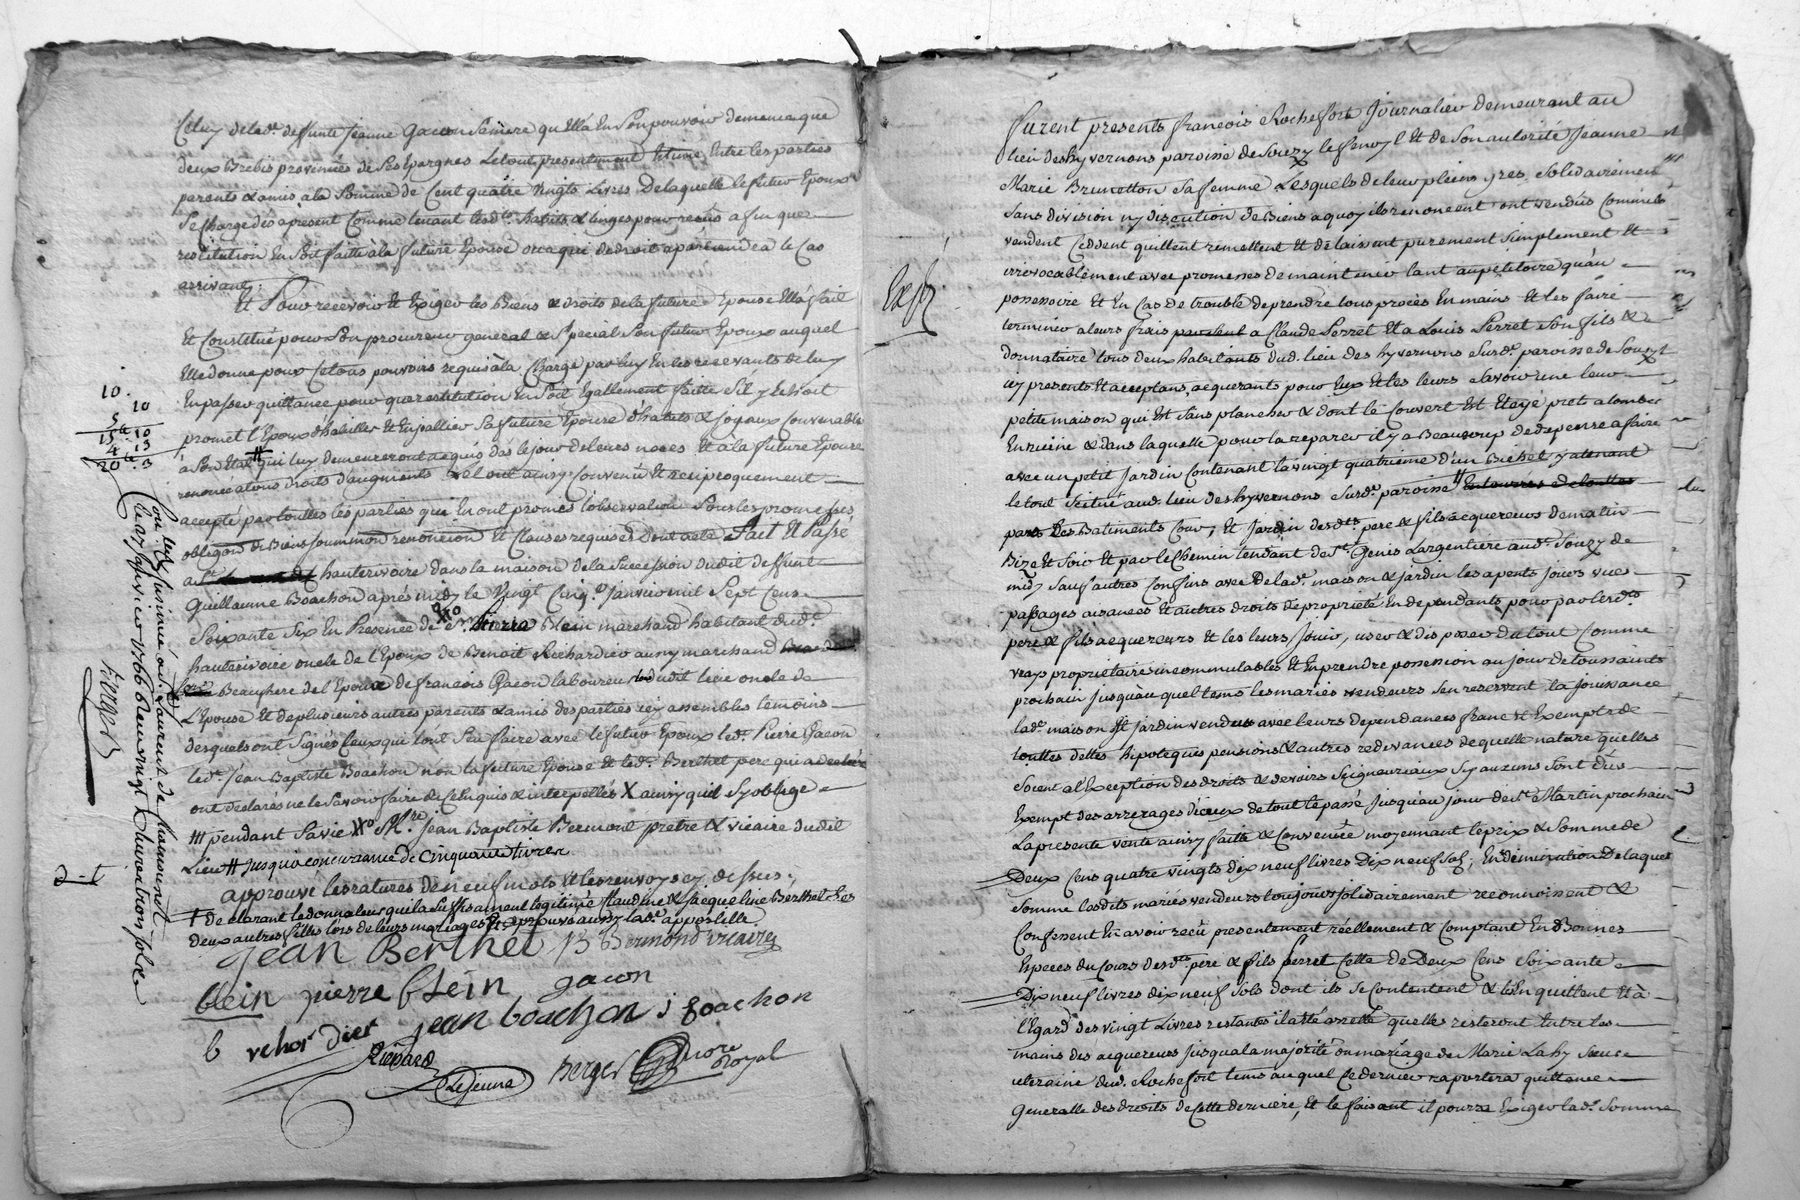 Celuy de lad.e deffunte Jeanne Gacon Sa mere qu'Ella En Son pouvoir de meme que
deux Brebis provenües de Ses Epargnes Le tout presentement Estimé Entre les parties
parents & amis a la Somme de Cent quatre vingts Livres De laquelle le futur Epoux
Se Charge dès apresent Comme tenant lesd.ts habits & linges pour reçus afin que
restitution En Soit faitte à la future Epouse ou a qui de droit apartiendra le Cas
arrivant;
Et Pour recevoir Et Exiger les Biens & droits de la future Epouse Ella fait
Et Constitué pour Son procureur general & Special Son futur Epoux auquel
Elle donne pour Ce tous pouvoirs requis à la Charge par luy En les recevants de luy
En passer quittance pour que restitution En Soit Egallement faitte S'il y Echoit
promet l'Epoux d'habiller & Enjoallier Sa future Epouse d'habits & Joyaux Convenables
à Son Etat # qui luy demeureront acquis dès le jour de leurs noces Et a la future Epouse
renoncé a tous droits d'augments Le tout ainsy Convenu Et reciproquement
accepté par touttes les parties qui En ont promis l'observation Sous les promesses
oblig.on de Biens Soummon renontion Et Clauses requises Dont acte Fait Et Passé
a St hauterivoire dans la maison de la Succession dudit deffunt
Guillaume Boachon après midy le Vingt Cinq.e Janvier mil Sept Cens
Soixante Six En Presence de Pierre Blein marchand habitant dud.t
hauterivoire oncle de l'Epoux de Benoit Rehordier aussy marchand
Beaufrere de l'Epoux de francois Gacon laboureur dudit lieu oncle de
L'Epouse Et de plusieurs autres parents & amis des parties icy assembles temoins
desquels ont Signés Ceux qui l'ont Sçu faire avec le futur Epoux led.t Pierre Gacon
led.t Jean Baptiste Boachon non la future Epouse Et led.t Berthet pere qui a declaré
ont declarés ne le Savoir faire de Ce Enquis & interpellés X aussy quil S'y oblige
### pendant Sa vie Xxo M.re Jean Baptiste Bermont prêtre & vicaire dudit
Lieu # Jusqu'a concurrance de cinquante livres
approuvé les ratures de neuf mots & les renvoys cy dessus;
† declarant le donnateur qu'il a Suffisament legitimé Claudine & Jacqueline Berthet Ses
deux autres filles lors de leurs mariages & approuvé aussy lad.e appostille
Jean Berthet JB Bermond vicaire
blein pierre blein gacon
b rehordier jean boachon j Boachon
Richard
Lejeune Berger nore royal
10.
10
5
15 10
4 13
20 3
2-t
Con.lé & insinué a St Laurent de chamousset
le 27 janvier 1766 Reçu vingt livres trois sols
Exp.
furent presents francois Rochefort Journalier demeurant au
lieu des hyvernons paroisse de Souzy le fenoyl Et de Son autorité Jeanne
Marie Brunetton Sa femme Lesquels de leur plein gres Solidairement
Sans division ny discution de Biens a quoy ils renoncent ont vendus Comme ils
vendent Cedent quittent remettent Et delaissent purement Simplement Et
irrevocablement avec promesses de maintenir tant au petitoire qu'au
possessoire Et En Cas de trouble de prendre tous procès En mains Et les faire
terminer a leurs frais a Claude Perret Et a Louis Perret Son fils &
donnataire tous deux habitants dud. lieu des hyvernons Surd.e paroisse de Souzy
icy presents Et acceptans, acquerants pour Eux Et les leurs Savoir une leur
petite maison qui Est Sans plancher & dont le Couvert Est Etayé pret a tomber
En ruine & dans laquelle pour la reparer il y a Beaucoup de depense a faire
avec un petit Jardin Contenant la vingt quatrieme d'un Bichet y attenant
le tout Scitué aud. lieu des hyvernons Surd.e paroisse # Entourres de touttes
parts Des Batiments Cour, Et Jardin desd.ts pere & fils acquereurs de matin
Bize Et Soir Et par le Chemin tendant de S.t Genis Largentiere aud.t Souzy de
midy Sauf autres Confins avec De lad.e maison & jardin les apents jours vues
passages aisances Et autres droits de proprieté En dependants pour par lesd.ts
pere & fils acquereurs Et les leurs, Jouir, user & disposer du tout Comme
vrays propriétaires incommutables Et En prendre possession au jour de toussaints
prochain jusqu'au quel tems les mariés vendeurs S'en reservent la Jouissance
lad.e maison Et jardin vendus avec leurs dependances franc & Exempt de
touttes dettes hipoteques pensions & autres redevances de quelle nature quelles
Soient a l'Exception des droits & devoirs Seigneuriaux Sy aucuns Sont dûs
Exempt des arrerages d'iceux de tout le passé Jusqu'au jour de S.t Martin prochain
La presente vente ainsy faitte & Convenüe moyennant le prix & Somme de
Deux Cens quatre vingts dix neuf livres Dix neuf Sols; En diminution De laquelle
Somme lesdits mariés vendeurs toujours Solidairement reconnoissent &
Confessent En avoir reçu presentement réellement & Comptant En Bonnes
Especes du Cours desd.ts pere & fils Perret Celle de Deux Cens Soixante
Dix neuf livres dix neuf Sols dont ils Se Contentent & les En quittent Et à
l'Egard des vingt Livres restantes il a eté arretté quelles resteront Entre les
mains des acquereurs Jusqu'a la majorité ou mariage de Marie Lahy Sœur
uteraine dud. Rochefort tems auquel Ce dernier raportera quittance
Generalle des droits de Cette derniere, Et le faisant il pourra Exiger lad.e Somme